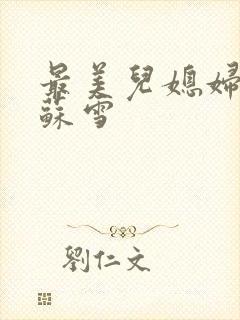 最美兒媳婦
蘇雪
劉仁文